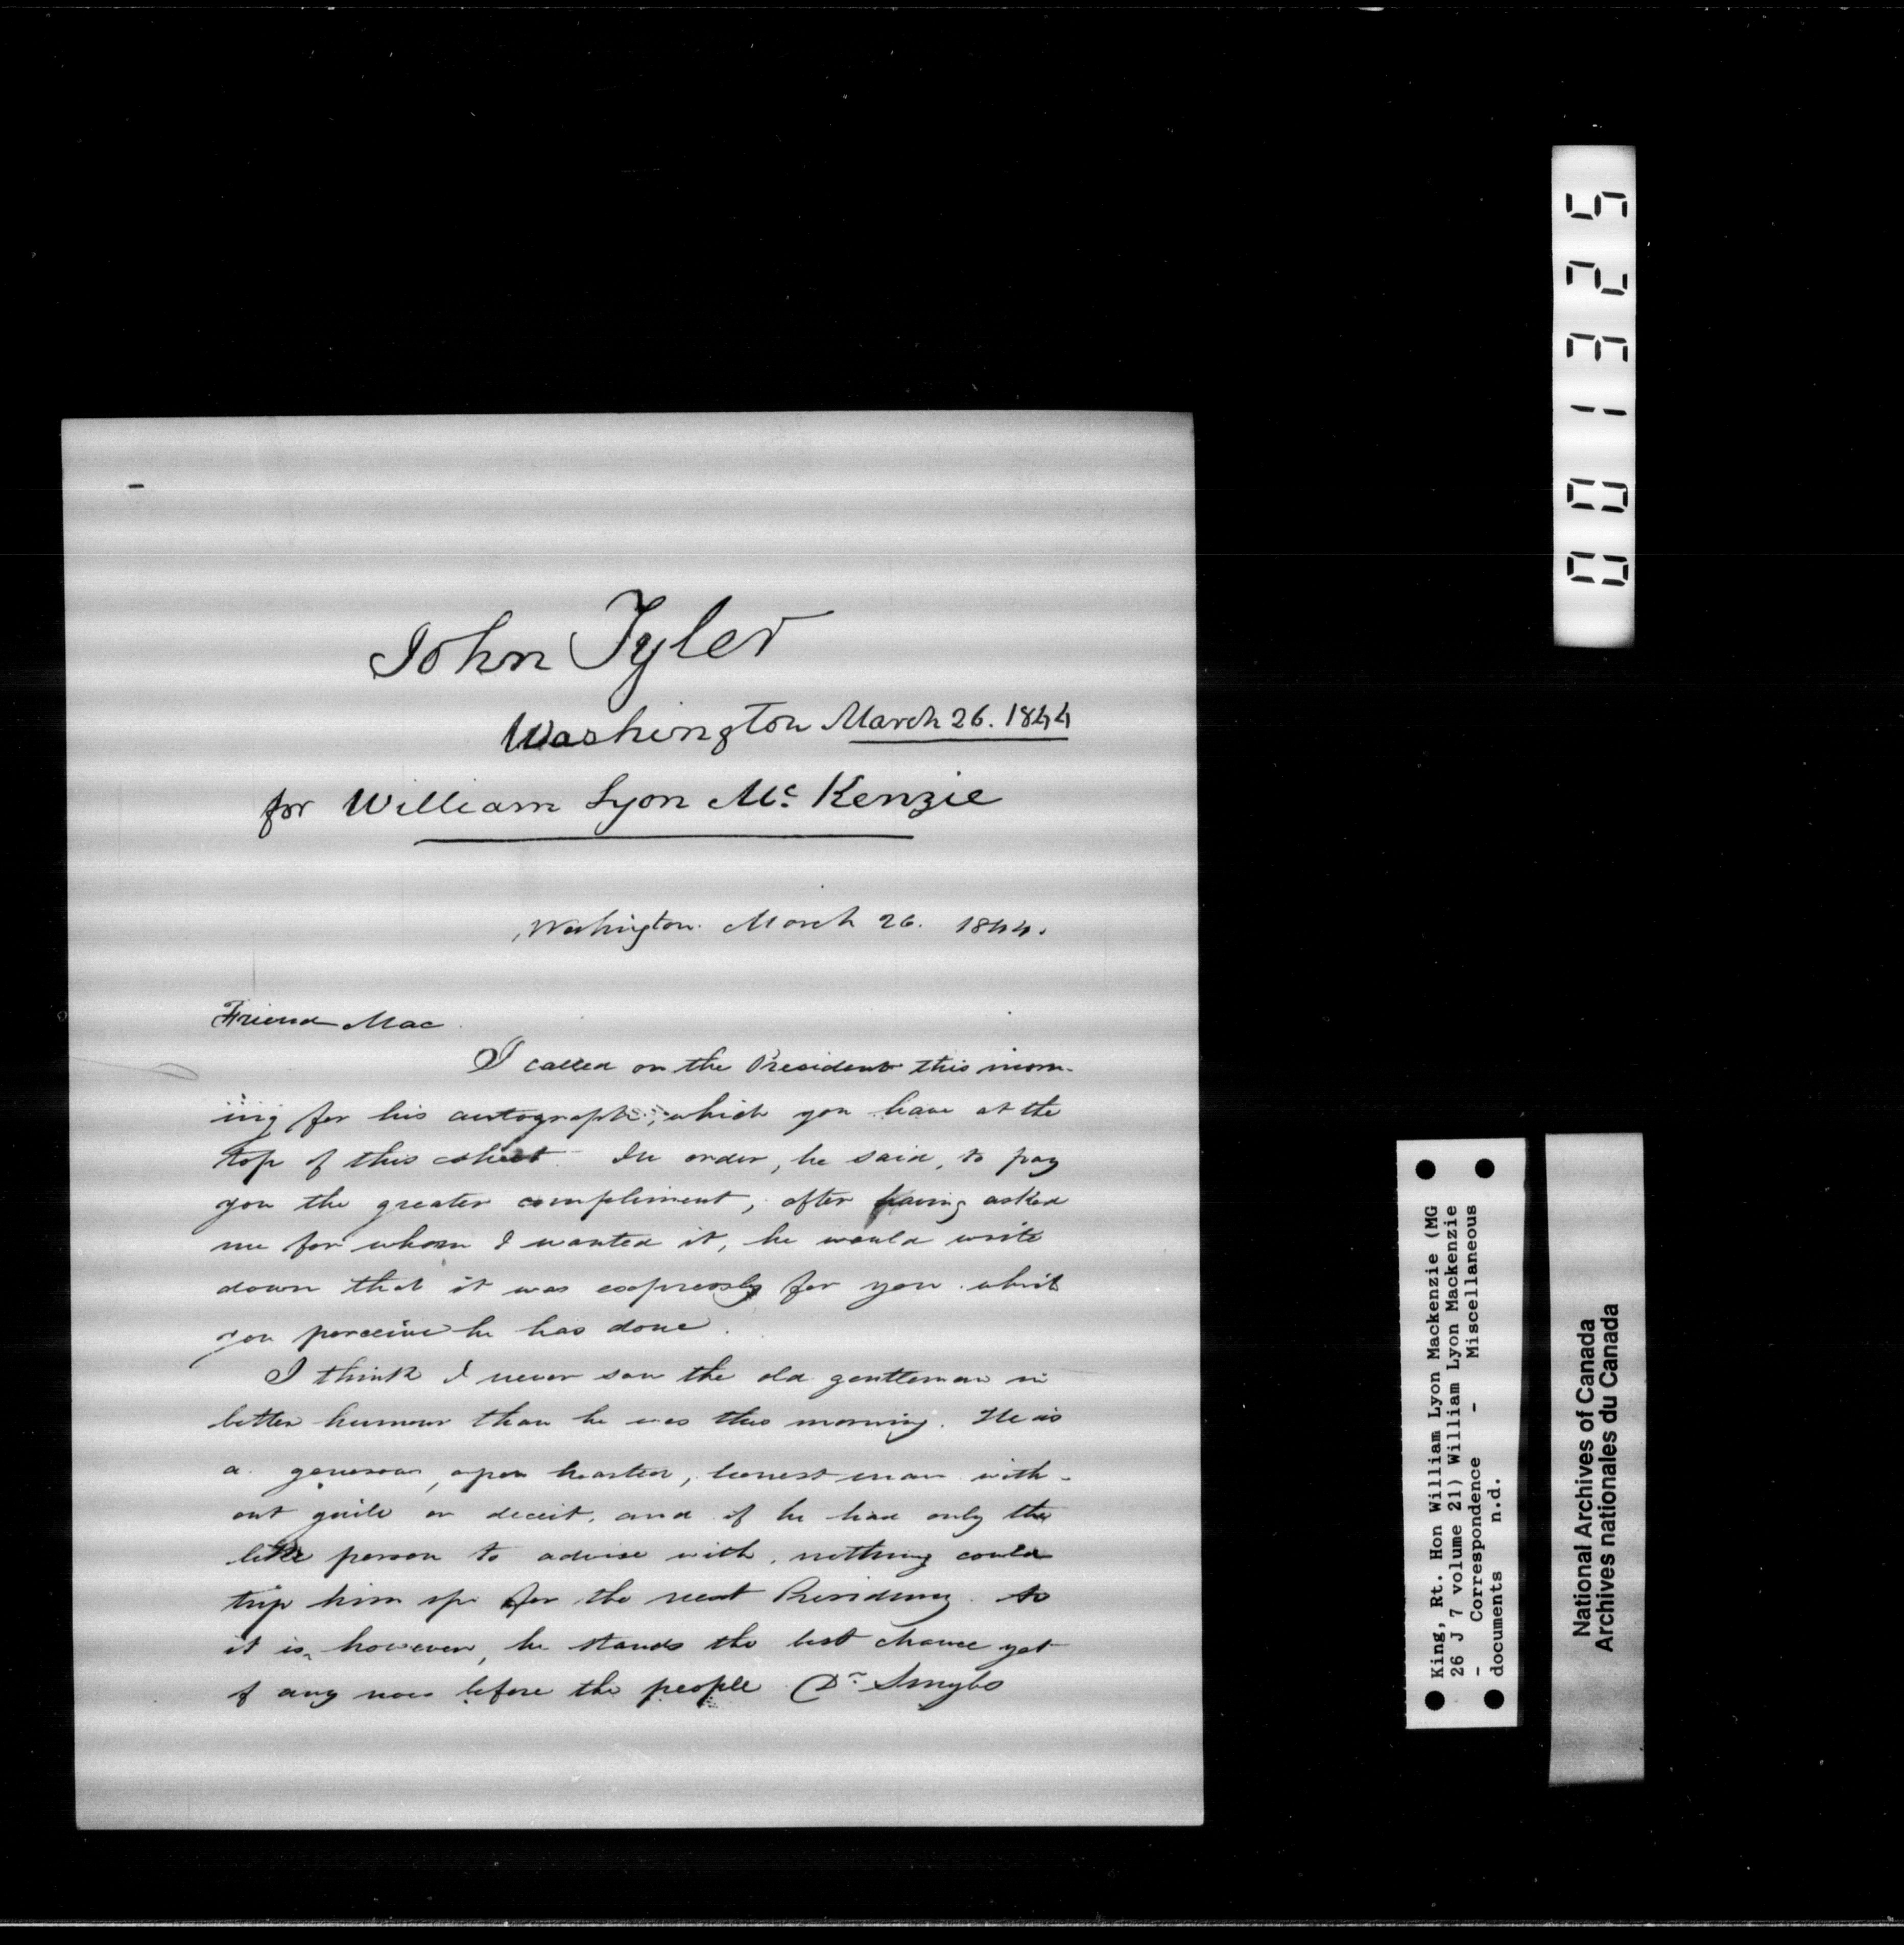 John Tyler
Washington March 26. 1844
for William Lyon Mc Kenzie
Washington. March 26. 1844.
Friend Mac
I called on the President this morn-
ing for his autograph, which you have at the
top of this sheet. In order, he said, to pay
you the greater compliment, after having asked
me for whom I wanted it, he would write
down that it was expressly for you which
you perceive he has done.
I think I never saw the old gentleman in
better humour than he was this morning. He is
a generous, open hearted, honest man with-
out guile or deceit, and if he had only the
like person to advise with, nothing could
trip him up for the next Presidency. As
it is, however, he stands the best chance yet
of any now before the people. Dr
001325
King, Rt. Hon William Lyon Mackenzie (MG
26 J 7 volume 21) William Lyon Mackenzie
- Correspondence - Miscellaneous
documents n.d.
National Archives of Canada
Archives nationales du Canada